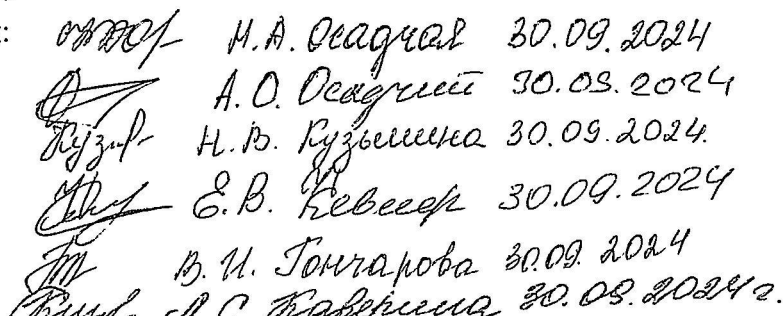 Н.А. Осадчая 30.09.2024
А.О. Осадчий 30.09.2024
Кузм Н.В. Кузьмина 30.09.2024.
Е.В. 30.09.2024
В.И. Гончарова 30.09.2024
А.С. Каверина 30.09.2024 г.